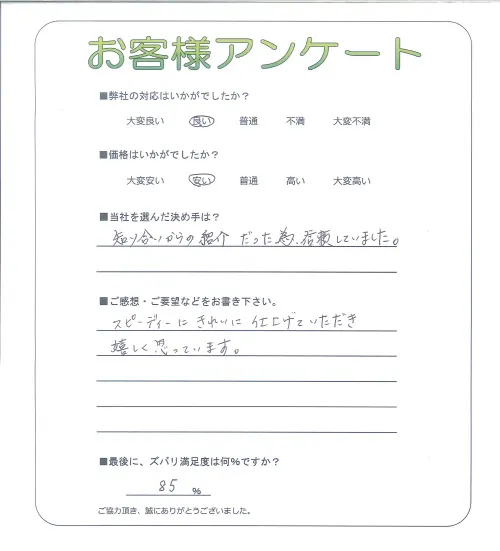 お客様アンケート
■弊社の対応はいかがでしたか？
大変良い 良い 普通 不満 大変不満
■価格はいかがでしたか？
大変安い 安い 普通 高い 大変高い
■当社を選んだ決め手は？
知り合いからの紹介だった為、信頼していました。
■ご感想・ご要望などをお書き下さい。
スピーディーにきれいに仕上げていただき
嬉しく思っています。
■最後に、ズバリ満足度は何%ですか？
85 %
ご協力頂き、誠にありがとうございました。